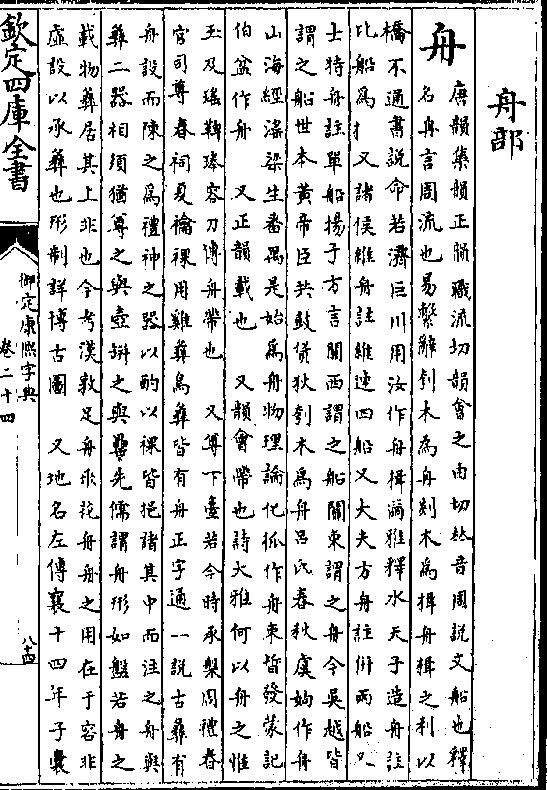 舟部
舟
唐韻集韻正韻職流切韻會之由切𠀤音周說文船也釋
名舟言周流也易繫辭刳木為舟剡木為楫舟楫之利以
橋不通書說命若濟巨川用汝作舟楫爾雅釋水天子造舟註
比船爲 又諸侯維舟註維連四船又大夫方舟註倂兩船又
士特舟註單船揚子方言關西謂之船關東謂之舟今吳越皆
謂之船世本黃帝臣共鼓貨狄刳木爲舟呂氏春秋虞姁作舟
山海經滛梁生番禺是始爲舟物理論化狐作舟束晳發蒙記
伯益作舟 又正韻載也 又韻會帶也詩大雅何以舟之惟
玉及瑤鞞琫容刀傳舟帶也 又尊下臺若今時承槃周禮春
官司尊春祠夏禴祼用雞彝鳥彝皆有舟正字通一說古彝有
舟設而陳之爲禮神之器以酌以祼皆挹諸其中而注之舟與
彝二器相須猶尊之與壺缾之與罍先儒謂舟形如盤若舟之
載物彝居其上非也今考漢敦足舟氷花舟舟之用在于容非
虛設以承彝也形制詳博古圖 又地名左傳襄十四年子囊
欽定四庫全書
御定康熙字典
卷二十四
八十四